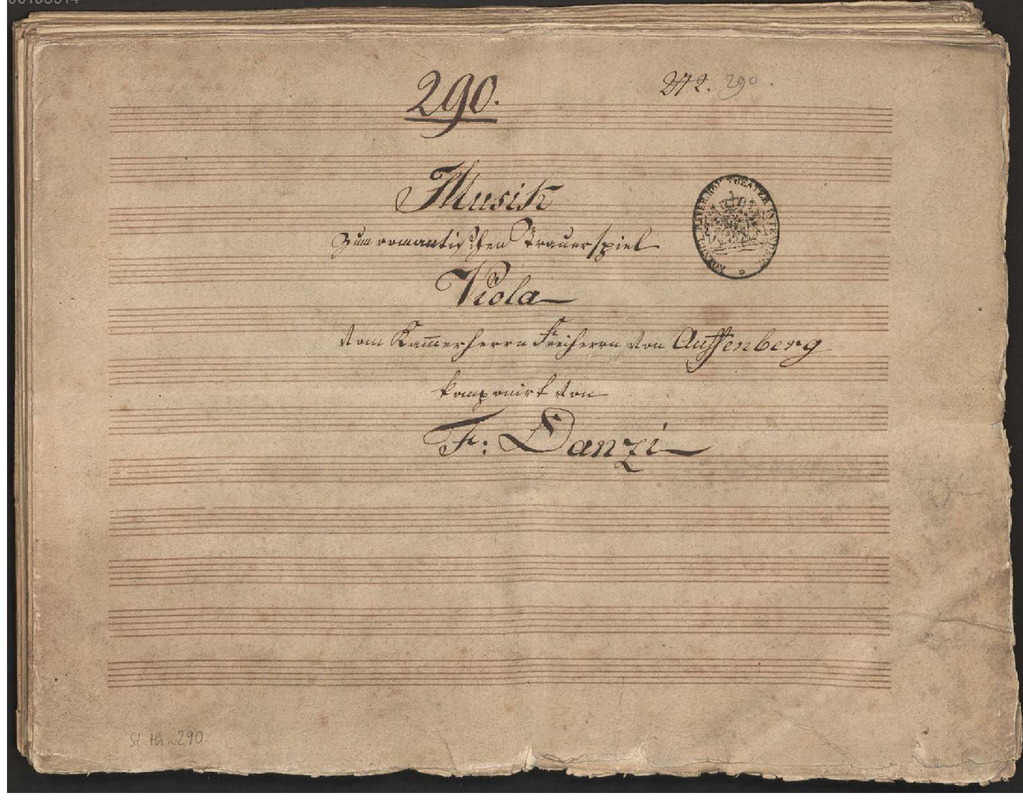 290.
272. 290.
Musik
zum romantischen Trauerspiel
Viola
vom Kam̅erherrn Freiherrn von Auffenberg
komponirt von
F: Danzi
St. th. 290.